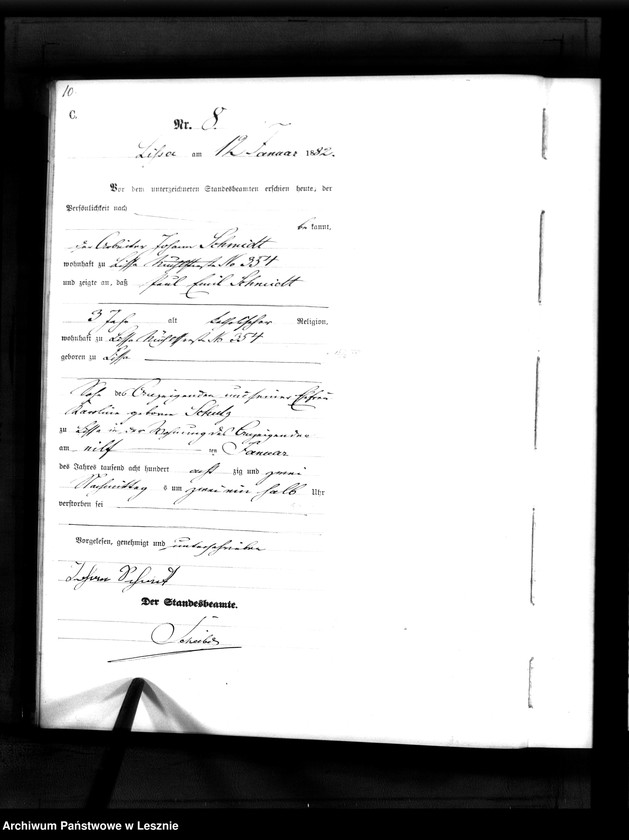 10
C.
Nr. 8.
Lissa am 12 Januar 1882.
Vor dem unterzeichneten Standesbeamten erschien heute, der
Persönlichkeit nach
be kannt,
der Arbeiter Johann Schmidt
wohnhaft zu Lissa No 354
und zeigte an, daß Paul Emil Schmidt
3 Jahr alt katholischer Religion,
wohnhaft zu Lissa No 354
geboren zu Lissa
Sohn des Anzeigenden und seiner Ehefrau
Karoline geborene Schulz
zu Lissa in der Wohnung des Anzeigenden
am elf ten Januar
des Jahres tausend acht hundert acht zig und zwei
Nachmittag s um zwei ein halb Uhr
verstorben sei
Vorgelesen, genehmigt und unterschrieben
Johann Schmidt
Der Standesbeamte.
Archiwum Państwowe w Lesznie